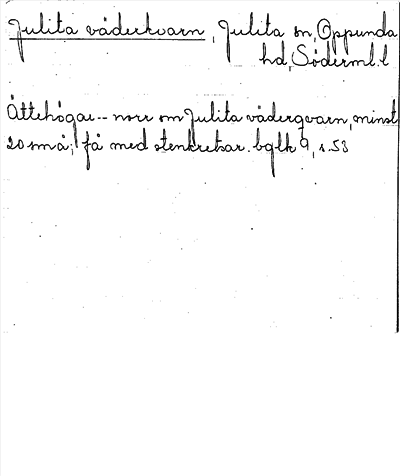 Julita väderkvarn, Julita sn, Oppunda
hd, Söderml. l
Ättehögar -- norr om Julita väderqvarn, minst
20 små; få med stenkretsar. bglh 9, s. 53